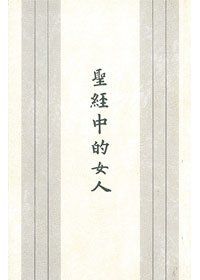 聖經中的女人